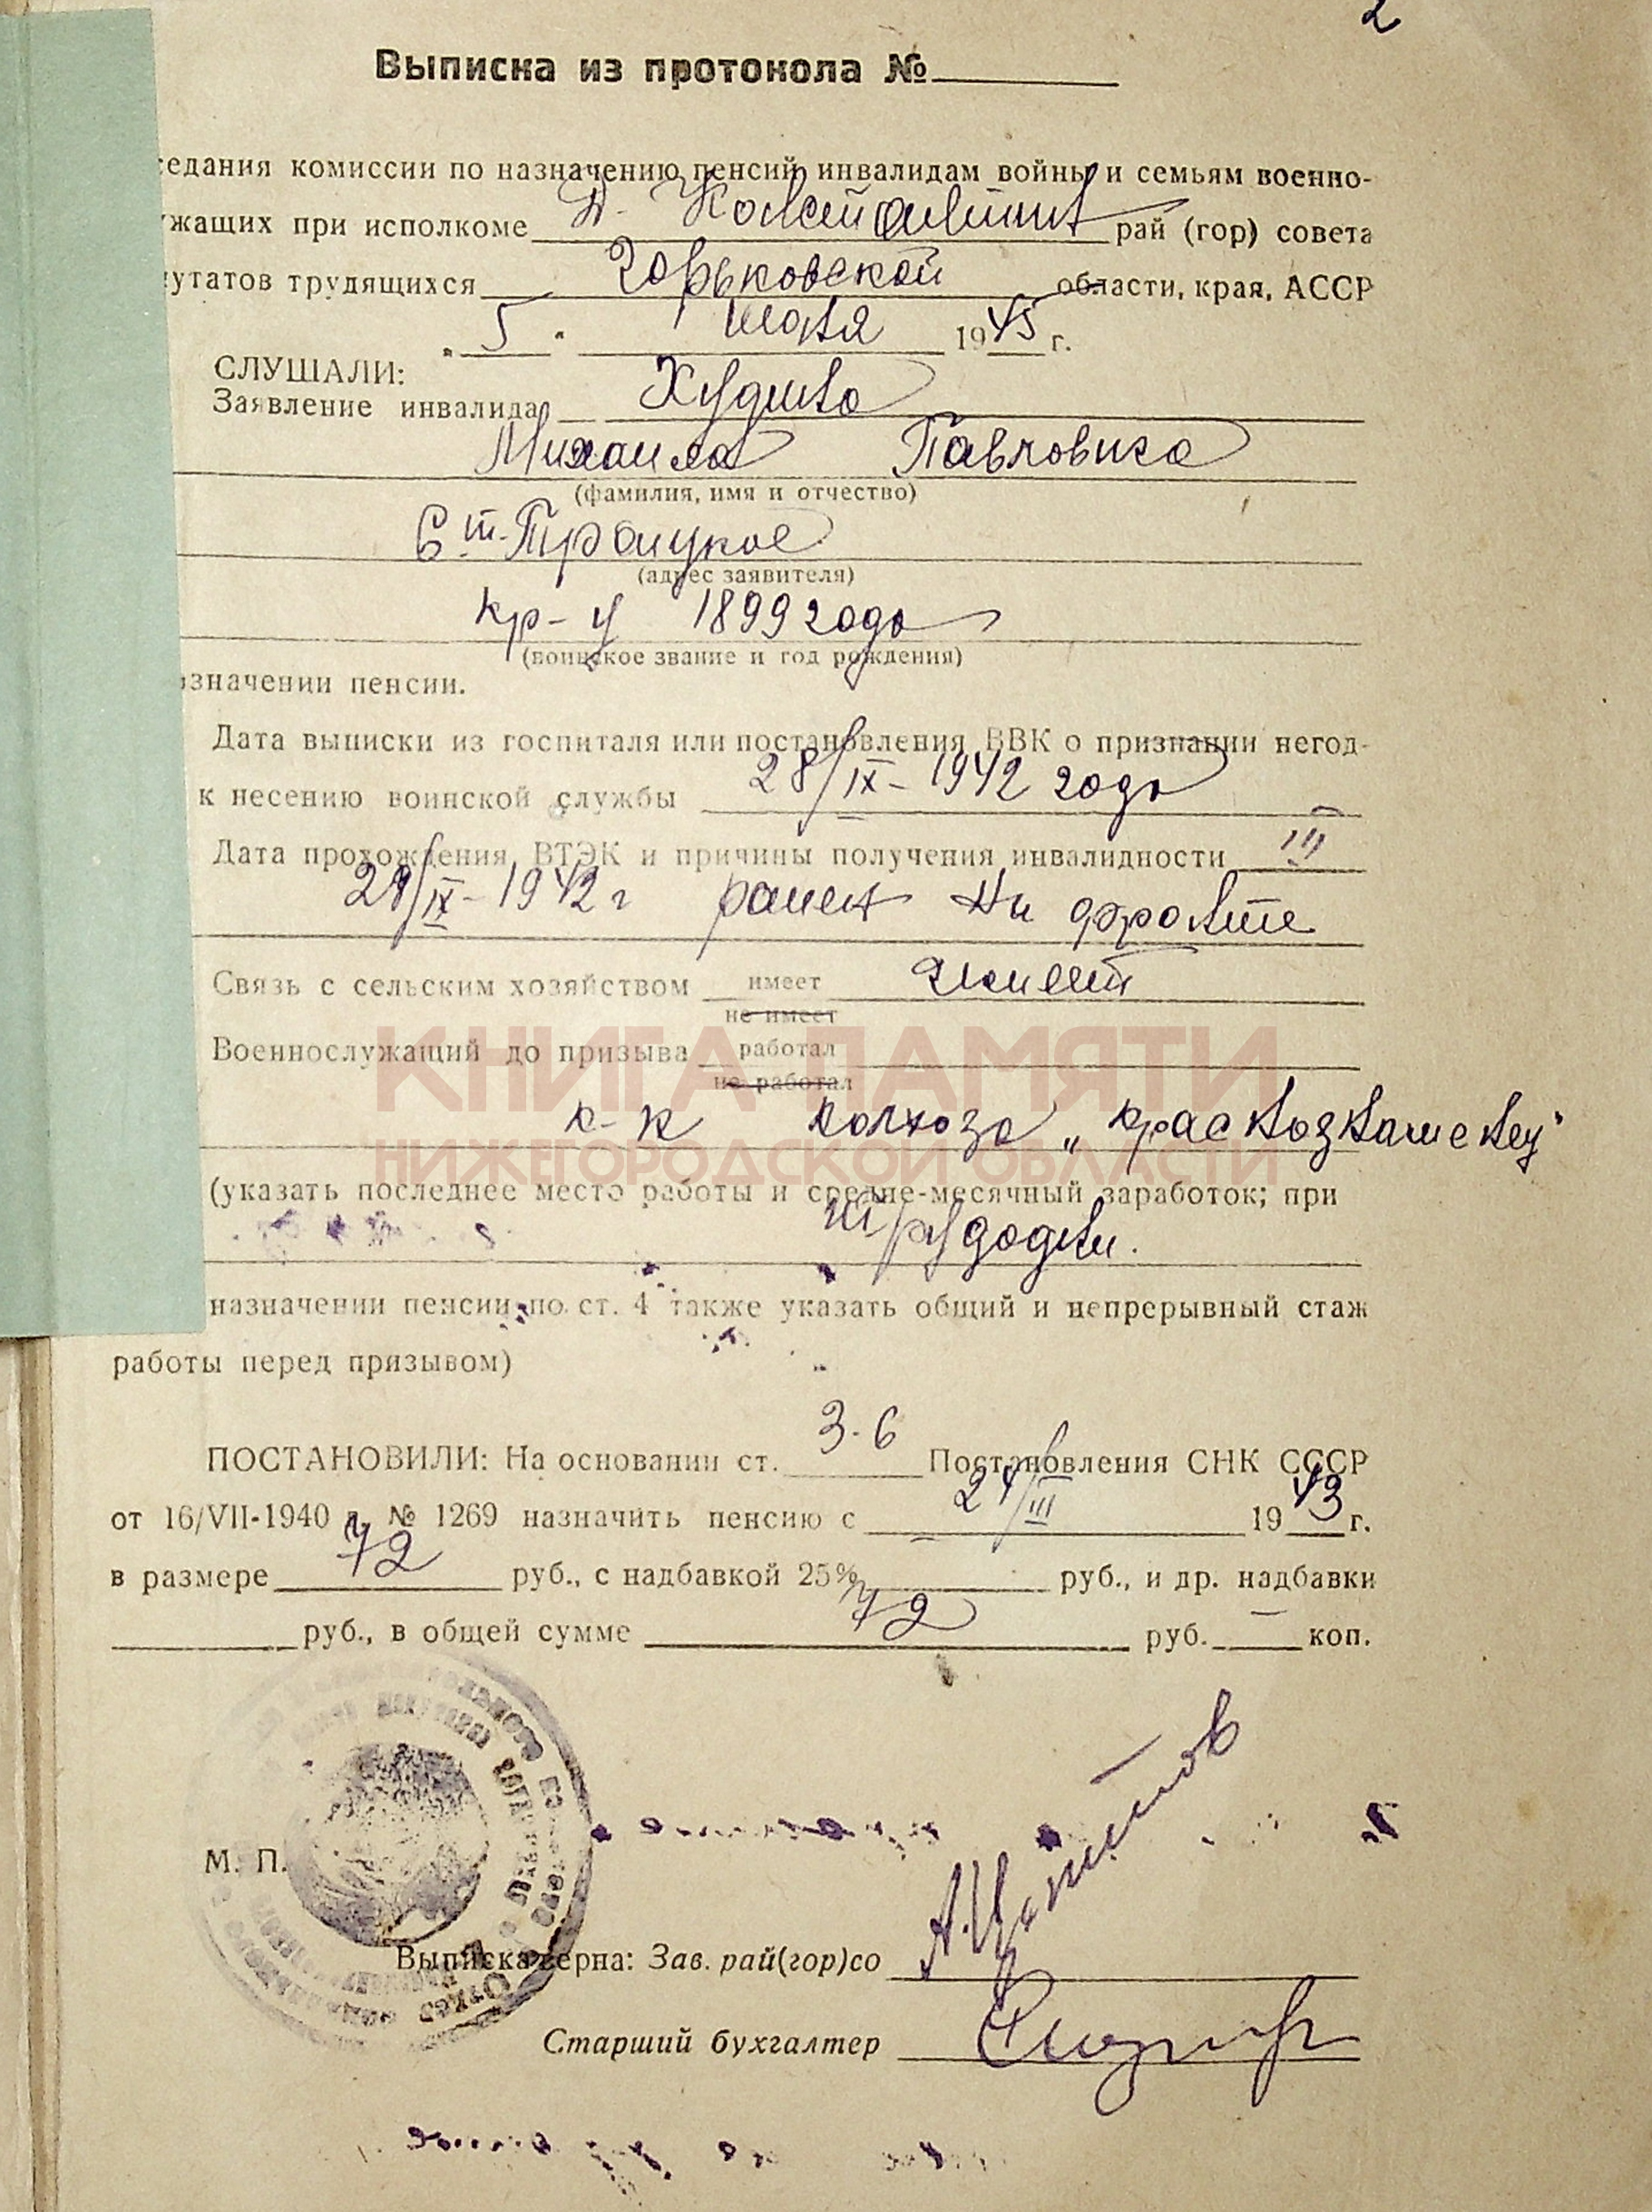 2
Выписка из протокола №
седания комиссии по назначению пенсий инвалидам войны и семьям военно-
жащих при исполкоме Д. Константин рай (гор) совета
путатов трудящихся Горьковской области, края, АССР
" 5 " мая 1945 г.
СЛУШАЛИ:
Заявление инвалида
Михаила Павловича
(фамилия, имя и отчество)
Троицкое
(адрес заявителя)
кр-ц 1899 года
(воинское звание и год рождения)
значении пенсии.
Дата выписки из госпиталя или постановления ВВК о признании негод-
к несению воинской службы 28/IX-1942 года
Дата прохождения ВТЭК и причины получения инвалидности III
29/IX-1942 г ранен на фронте
Связь с сельским хозяйством имеет имеет
не имеет
Военнослужащий до призыва работал
не работал
КНИГА ПАМЯТИ
к-к колхоза „краснознаменец"
НИЖЕГОРОДСКОЙ ОБЛАСТИ
(указать последнее место работы и средне-месячный заработок; при
трудодни.
назначении пенсии по ст. 4 также указать общий и непрерывный стаж
работы перед призывом)
ПОСТАНОВИЛИ: На основании ст. 3-6 Постановления СНК СССР
от 16/VII-1940 г. № 1269 назначить пенсию с 24/III 1943 г.
в размере 72 руб., с надбавкой 25% руб., и др. надбавки
руб., в общей сумме 72 руб. — коп.
М. П.
Выписка верна: Зав. рай(гор)со
Старший бухгалтер